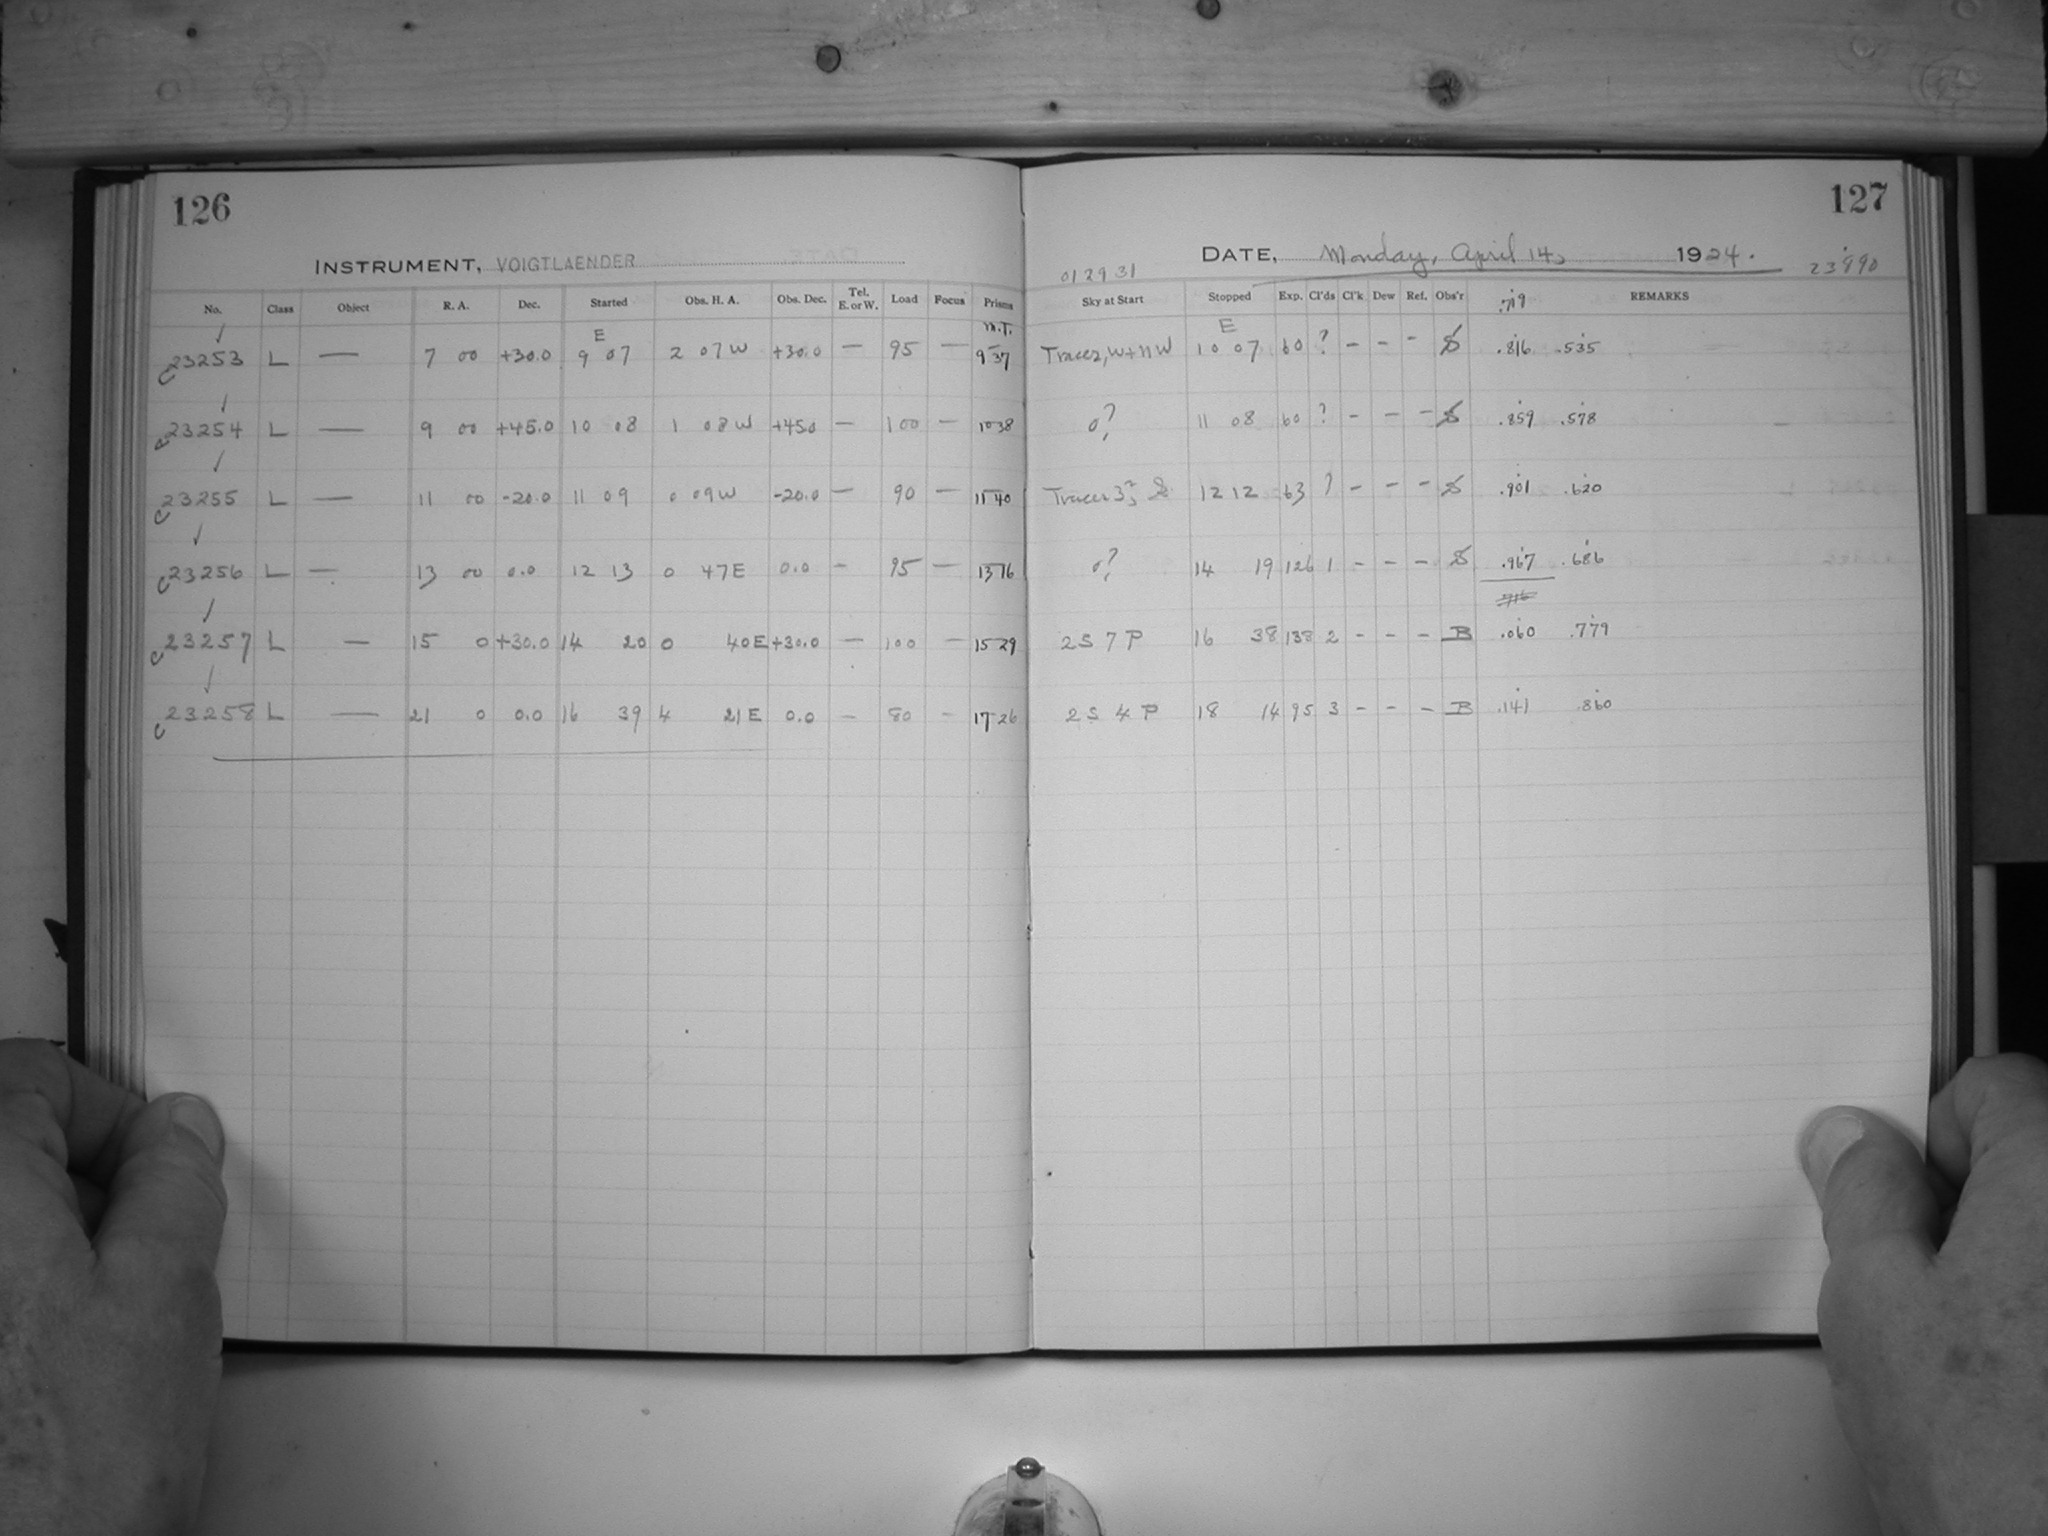 126
127
INSTRUMENT, VOIGTLAENDER
DATE, Monday, April 14, 1924.
01 29 31
23890
No. Class Object R. A. Dec. Started Obs. H. A. Obs. Dec. Tel. E. or W. Load Focus Prisms Sky at Start Stopped Exp. Cl'ds Cl'k Dew Ref. Obs'r .719 REMARKS
E M.T. E
C23253 L — 7 00 +30.0 9 07 2 07 W +30.0 — 95 — 9 37 Traces, W + NW 10 07 60 ? - - - S .816 .535
C23254 L — 9 00 +45.0 10 08 1 08 W +45.0 — 100 — 10 38 0? 11 08 60 ? - - - S .859 .578
C23255 L — 11 00 -20.0 11 09 0 09 W -20.0 — 90 — 11 40 Traces 12 12 63 ? - - - S .901 .620
C23256 L — 13 00 0.0 12 13 0 47 E 0.0 - 95 — 13 16 0? 14 19 126 1 - - - S .967 .686
C23257 L — 15 0 +30.0 14 20 0 40 E +30.0 — 100 — 15 29 2 S 7 P 16 38 138 2 - - - B .060 .779
C23258 L — 21 0 0.0 16 39 4 21 E 0.0 — 80 - 17 26 2 S 4 P 18 14 95 3 - - - B .141 .860